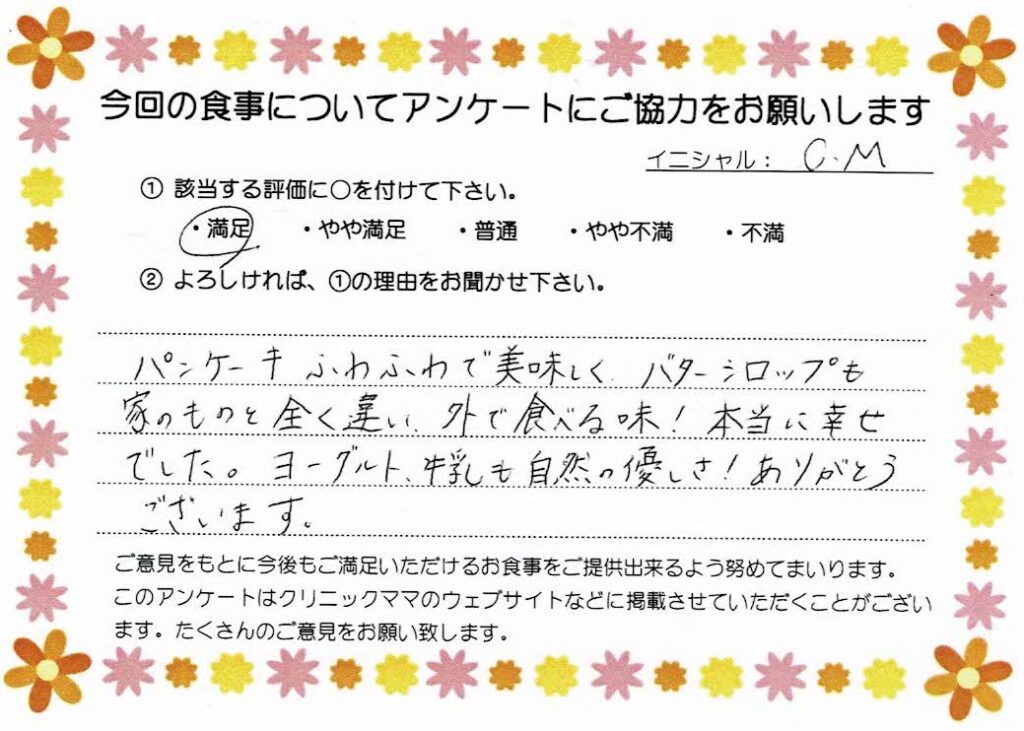 今回の食事についてアンケートにご協力をお願いします
イニシャル： C.M
① 該当する評価に○を付けて下さい。
・満足 ・やや満足 ・普通 ・やや不満 ・不満
② よろしければ、①の理由をお聞かせ下さい。
パンケーキ ふわふわで美味しく、バターシロップも
家のものと全く違い、外で食べる味！本当に幸せ
でした。ヨーグルト、牛乳も自然の優しさ！ありがとう
ございます。
ご意見をもとに今後もご満足いただけるお食事をご提供出来るよう努めてまいります。
このアンケートはクリニックママのウェブサイトなどに掲載させていただくことがござい
ます。たくさんのご意見をお願い致します。